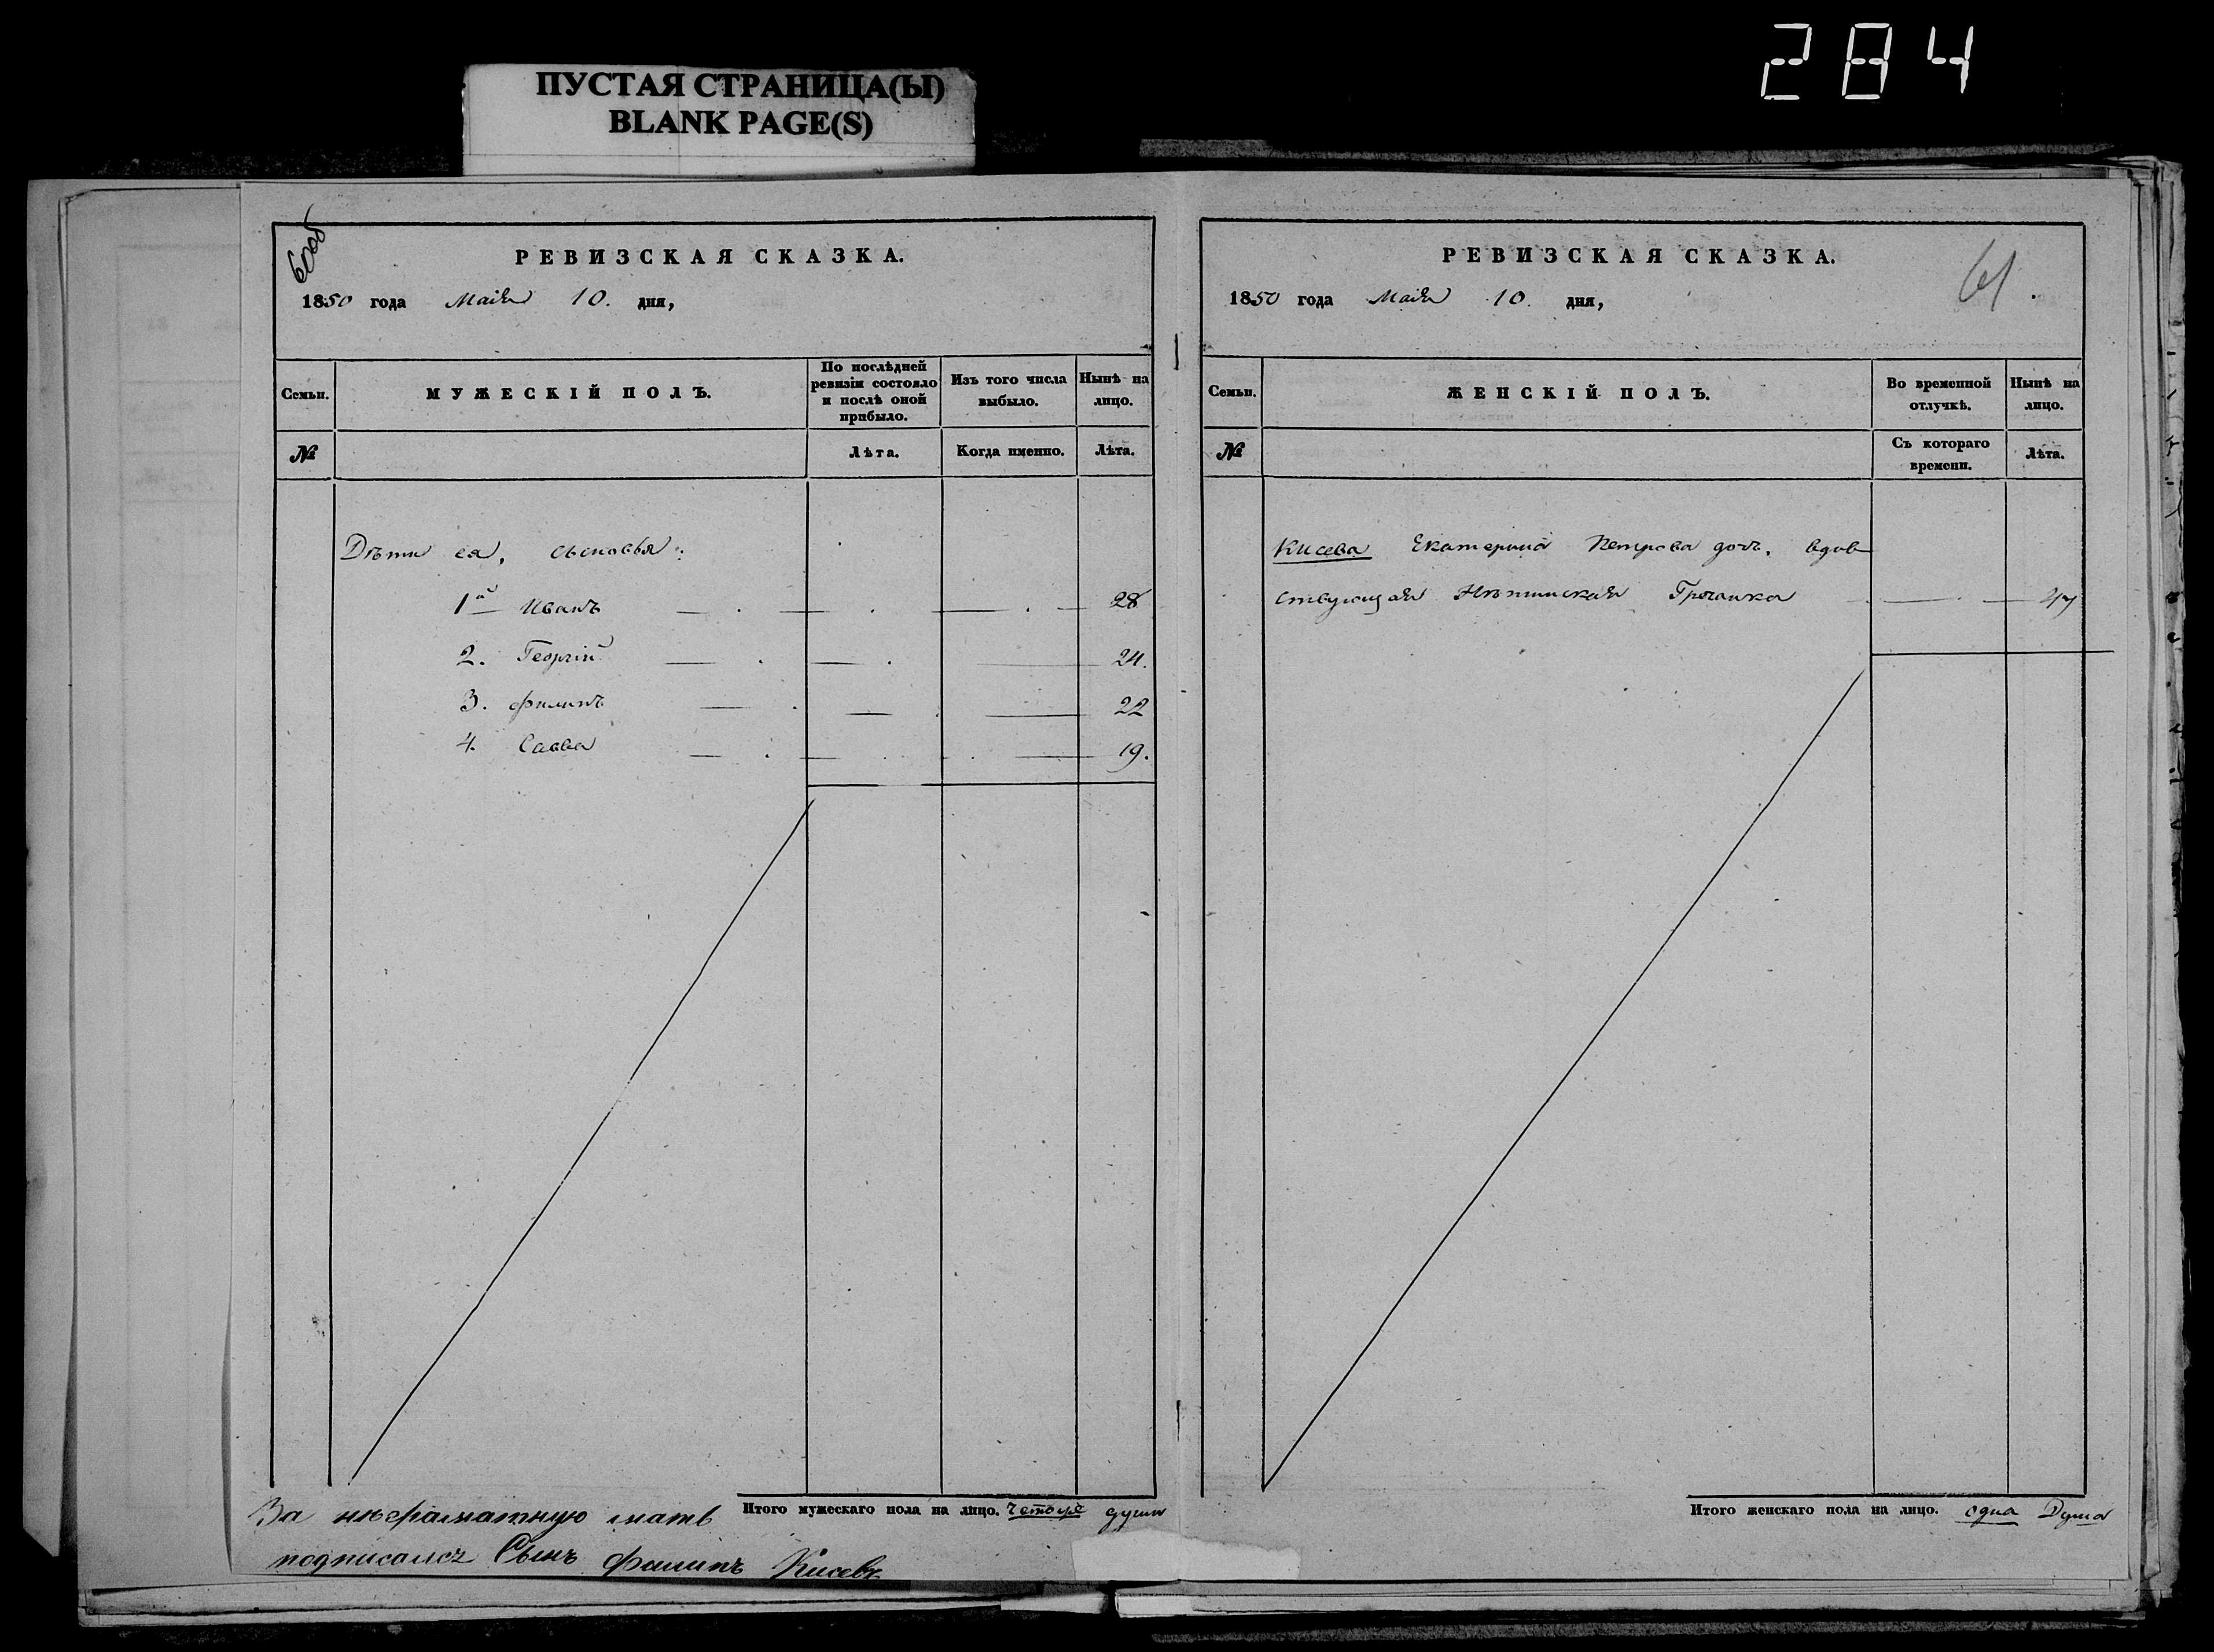 284
ПУСТАЯ СТРАНИЦА(Ы)
BLANK PAGE(S)
РЕВИЗСКАЯ СКАЗКА.
1850 года Маія 10. дня,
Семьи.
МУЖЕСКІЙ ПОЛЪ.
По послѣдней ревизіи состояло и послѣ оной прибыло.
Изъ того числа выбыло.
Нынѣ на лицо.
№
Лѣта.
Когда именно.
Лѣта.
Дѣти ея, сыновья:
1й Иванъ 28
2. Георгій 24.
3. Филипъ 22
4. Савва 19.
Итого мужескаго пола на лицо. четыре души
За неграматную мать
подписалсъ Сынъ Филипъ Кисевъ
РЕВИЗСКАЯ СКАЗКА.
61.
1850 года Маія 10. дня,
Семьи.
ЖЕНСКІЙ ПОЛЪ.
Во временной отлучкѣ.
Нынѣ на лицо.
№
Съ котораго времени.
Лѣта.
Кисева Екатерина Петрова доч. вдов
ствующая Нѣжинская Гречанка 47
Итого женскаго пола на лицо. одна Душа